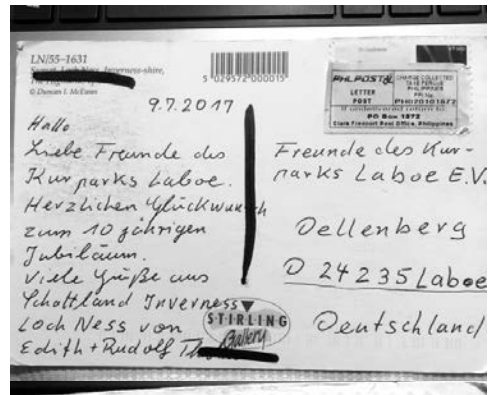 LN/55-1631
Sunset, Loch Ness, Inverness-shire,
The Highlands
© Duncan I. McEwan
5 029572 000015
PHLPOST
CHARGE COLLECTED
TAXE PERCUE
PHILIPPINES
LETTER
POST
PHI/20101872
PO Box 1872
Clark Freeport Post Office, Philippines
9.7.2017
Hallo
Liebe Freunde des
Kurparks Laboe.
Herzlichen Glückwunsch
zum 10 jährigen
Jubiläum.
Viele Grüße aus
Schottland Inverness
Loch Ness von
Edith + Rudolf
STIRLING
Gallery
Freunde des Kur-
parks Laboe E.V.
Dellenberg
D 24235 Laboe
Deutschland